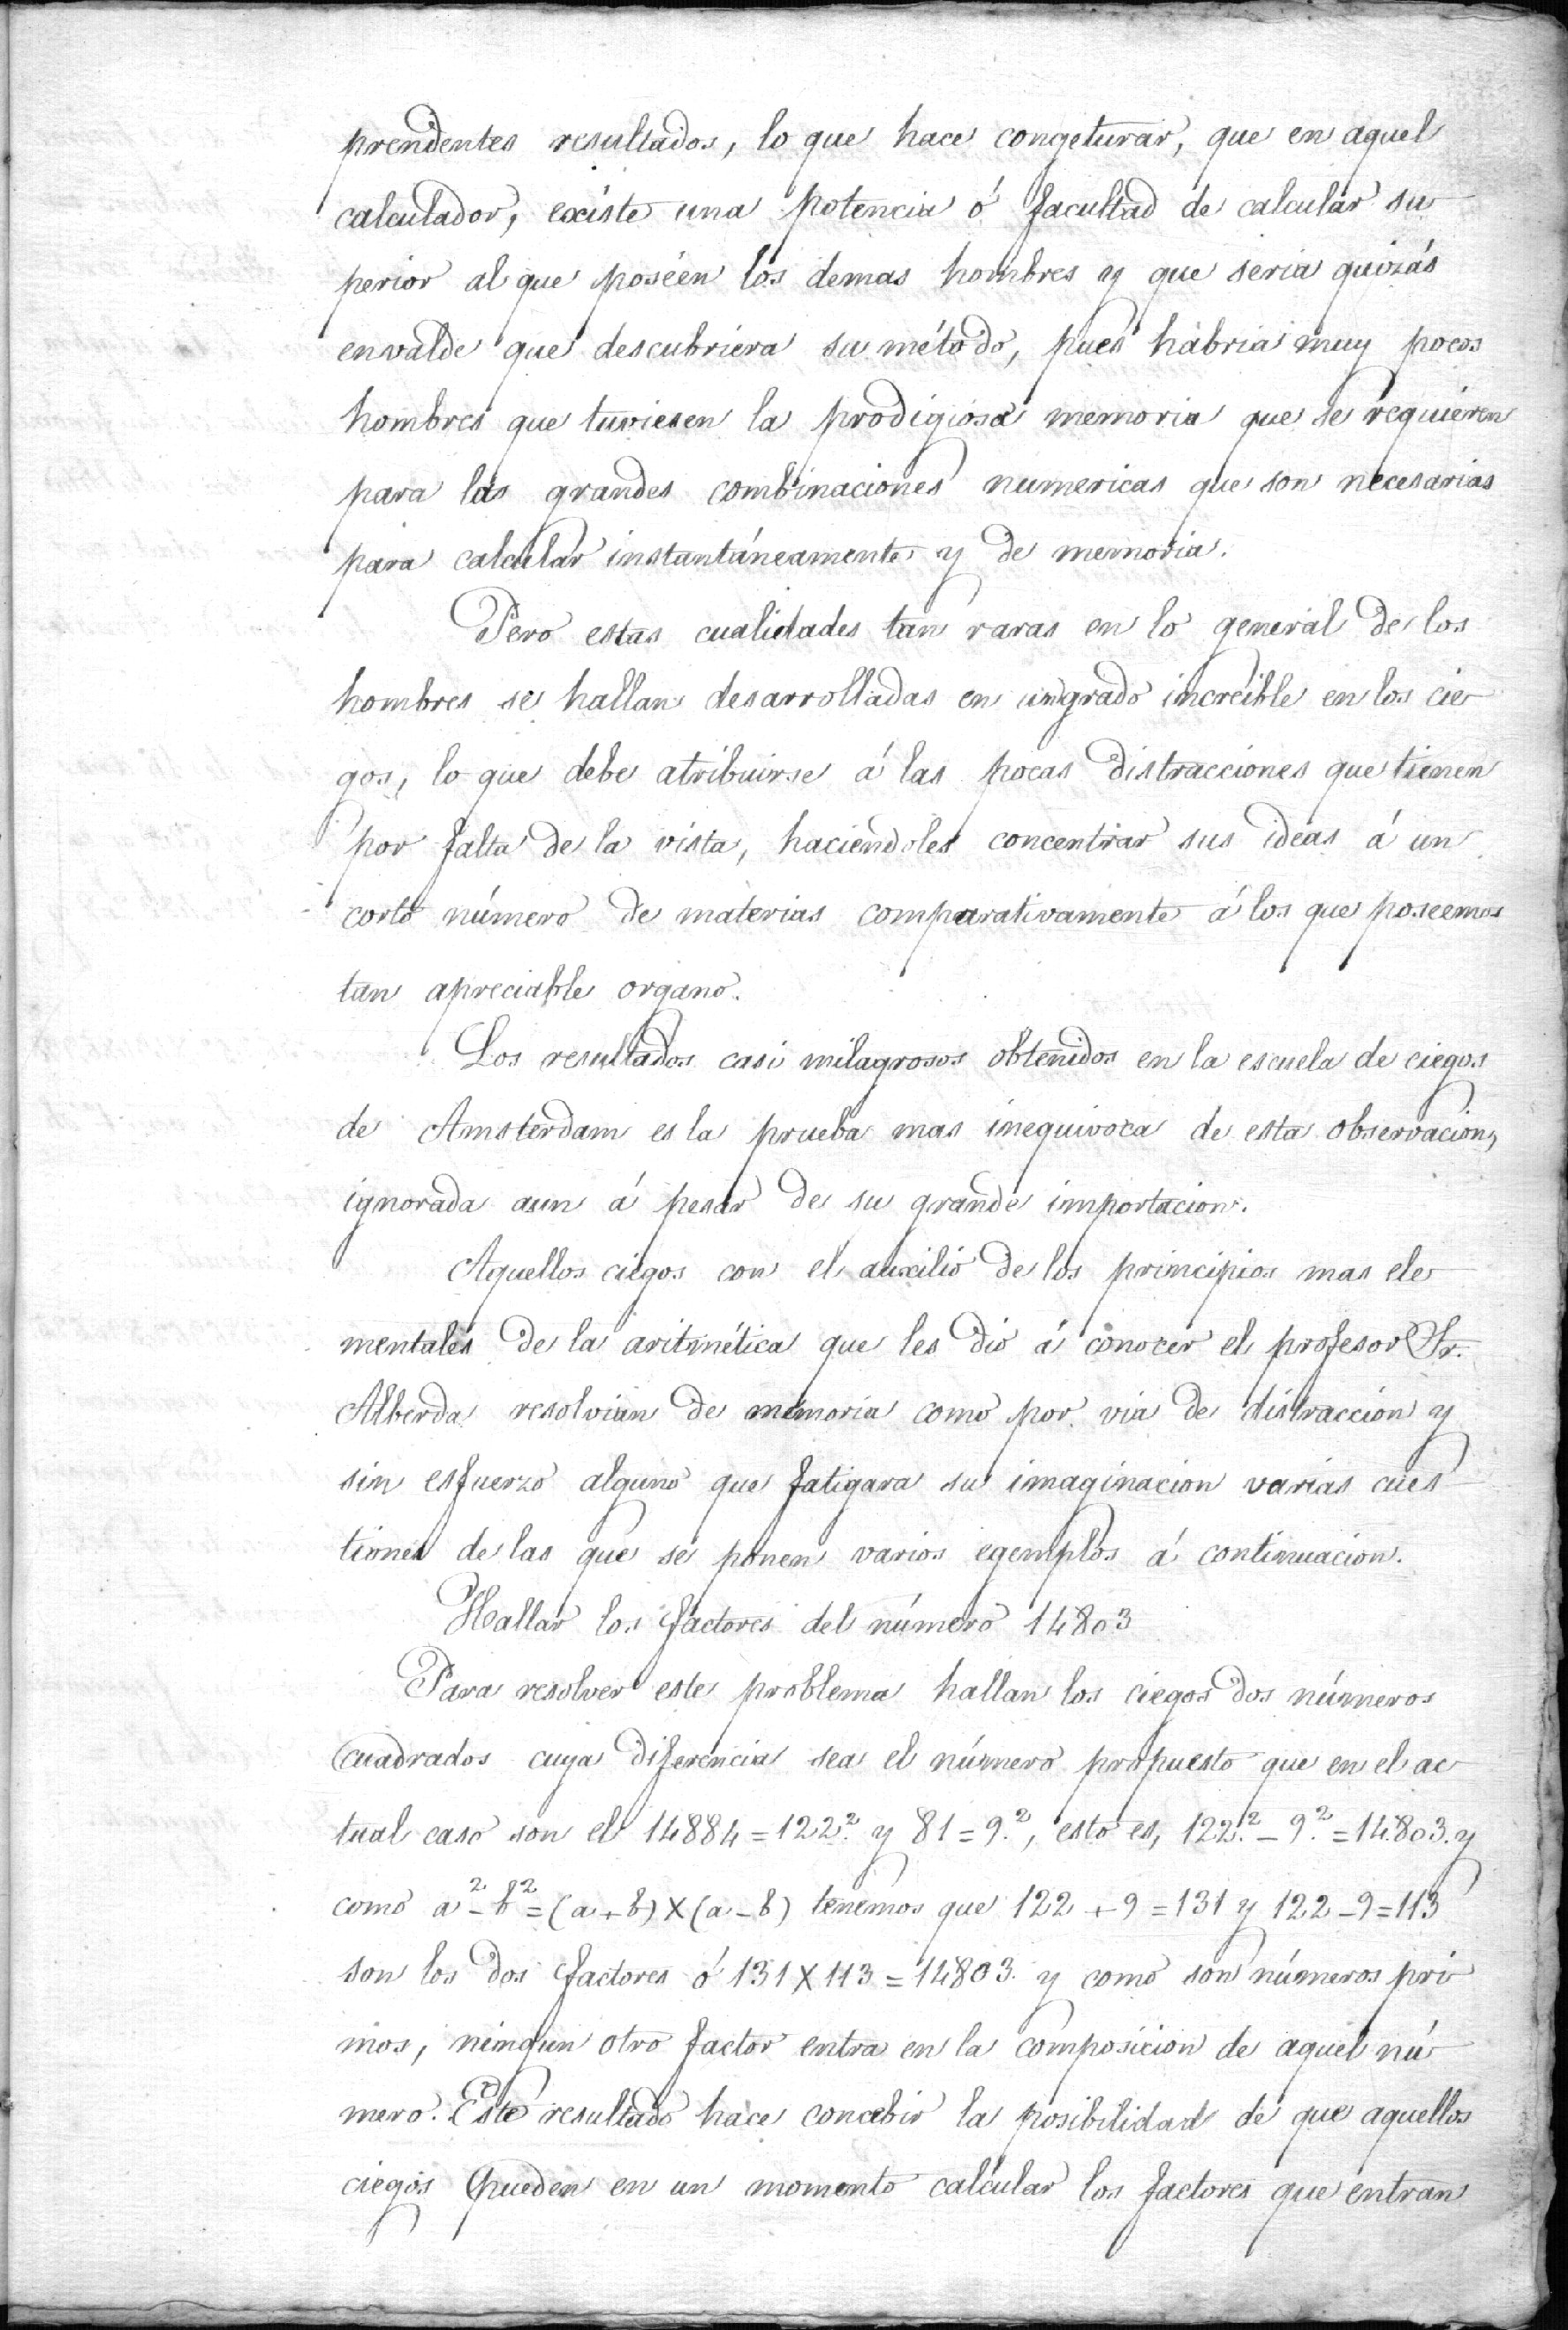 prendentes resultados, lo que hace congeturar, que en aquel
calculador, existe una potencia ó facultad de calcular su
perior al que poséen los demas hombres y que seria quizás
envalde que descubriera su método, pues habria muy pocos
hombres que tuviesen la prodigiosa memoria que se requieren
para las grandes combinaciones numericas que son necesarias
para calcular instantáneamente y de memoria.
Pero estas cualidades tan raras en lo general de los
hombres se hallan desarrolladas en un grado increible en los cie
gos, lo que debe atribuirse á las pocas distracciones que tienen
por falta de la vista, haciendoles concentrar sus ideas á un
corto número de materias comparativamente á los que poseemos
tan apreciable organo.
Los resultados casi milagrosos obtenidos en la escuela de ciegos
de Amsterdam es la prueba mas inequivoca de esta observacion,
ignorada aun á pesar de su grande importacion.
Aquellos ciegos con el auxilio de los principios mas ele
mentales de la aritmética que les dió á conocer el profesor Sr.
Alberda resolvian de memoria como por via de distraccion y
sin esfuerzo alguno que fatigara su imaginacion varias cues
tiones de las que se ponen varios egemplos á continuacion.
Hallar los factores del número 14803
Para resolver este problema hallan los ciegos dos números
cuadrados cuya diferencia sea el número propuesto que en el ac
tual caso son el 14884=122.² y 81=9.², esto es, 122.²-9.²=14.803. y
como a²-b²=(a+b)×(a-b) tenemos que 122+9=131 y 122-9=113
son los dos factores ó 131×113=14803. y como son números pri
mos, ningun otro factor entra en la composicion de aquel nú
mero. Este resultado hace concebir la posibilidad de que aquellos
ciegos pueden en un momento calcular los factores que entran